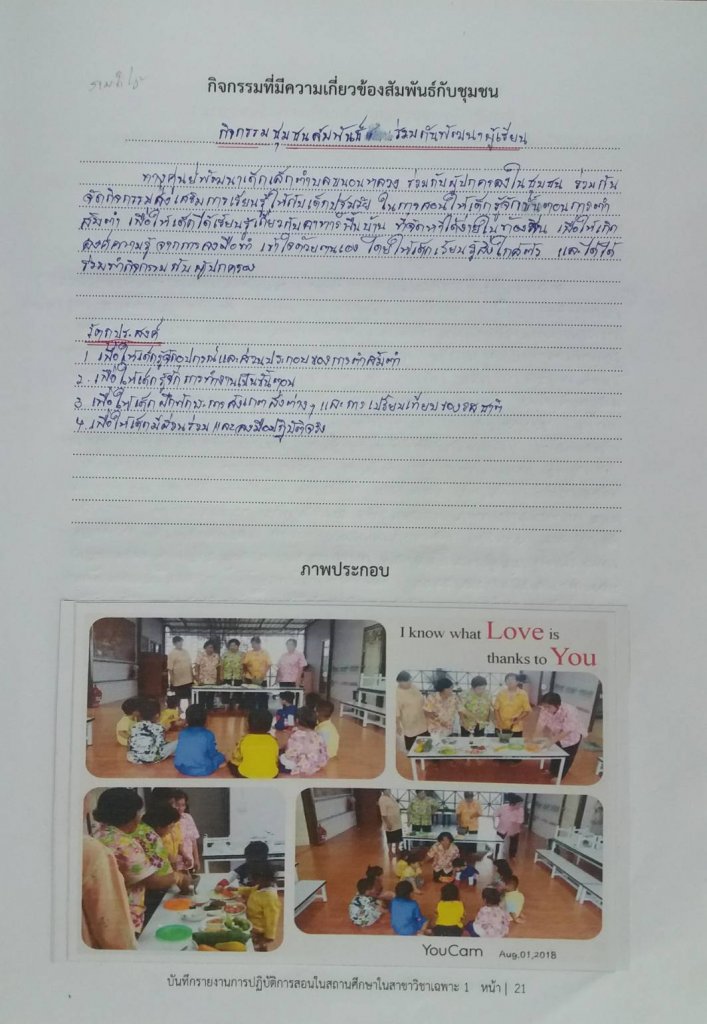 กิจกรรมที่มีความเกี่ยวข้องสัมพันธ์กับชุมชน
กิจกรรมชุมชนสัมพันธ์ ร่วมกันพัฒนาผู้เรียน
ทางศูนย์พัฒนาเด็กเล็กตำบลขนอนหลวง ร่วมกับผู้ปกครองในชุมชน ร่วมกัน
จัดกิจกรรมส่งเสริมการเรียนรู้ให้กับเด็กปฐมวัย ในการสอนให้เด็กรู้จักขั้นตอนการตำ
ส้มตำ เพื่อให้เด็กได้เรียนรู้เกี่ยวกับอาหารพื้นบ้าน ที่จัดหาได้ง่ายในท้องถิ่น เพื่อให้เกิด
องค์ความรู้ จากการลงมือทำ เข้าใจด้วยตนเอง โดยให้เด็กเรียนรู้สิ่งใกล้ตัว และได้
ร่วมทำกิจกรรมกับผู้ปกครอง
วัตถุประสงค์
1. เพื่อให้เด็กรู้จักอุปกรณ์และส่วนประกอบของการตำส้มตำ
2. เพื่อให้เด็กรู้จักการทำงานเป็นขั้นตอน
3. เพื่อให้เด็กฝึกทักษะการสังเกตสิ่งต่างๆ และการเปรียบเทียบของรสชาติ
4. เพื่อให้เด็กมีส่วนร่วมและลงมือปฏิบัติจริง
ภาพประกอบ
I know what Love is
thanks to You
YouCam Aug,01,2018
บันทึกรายงานการปฏิบัติการสอนในสถานศึกษาในสาขาวิชาเฉพาะ 1 หน้า | 21